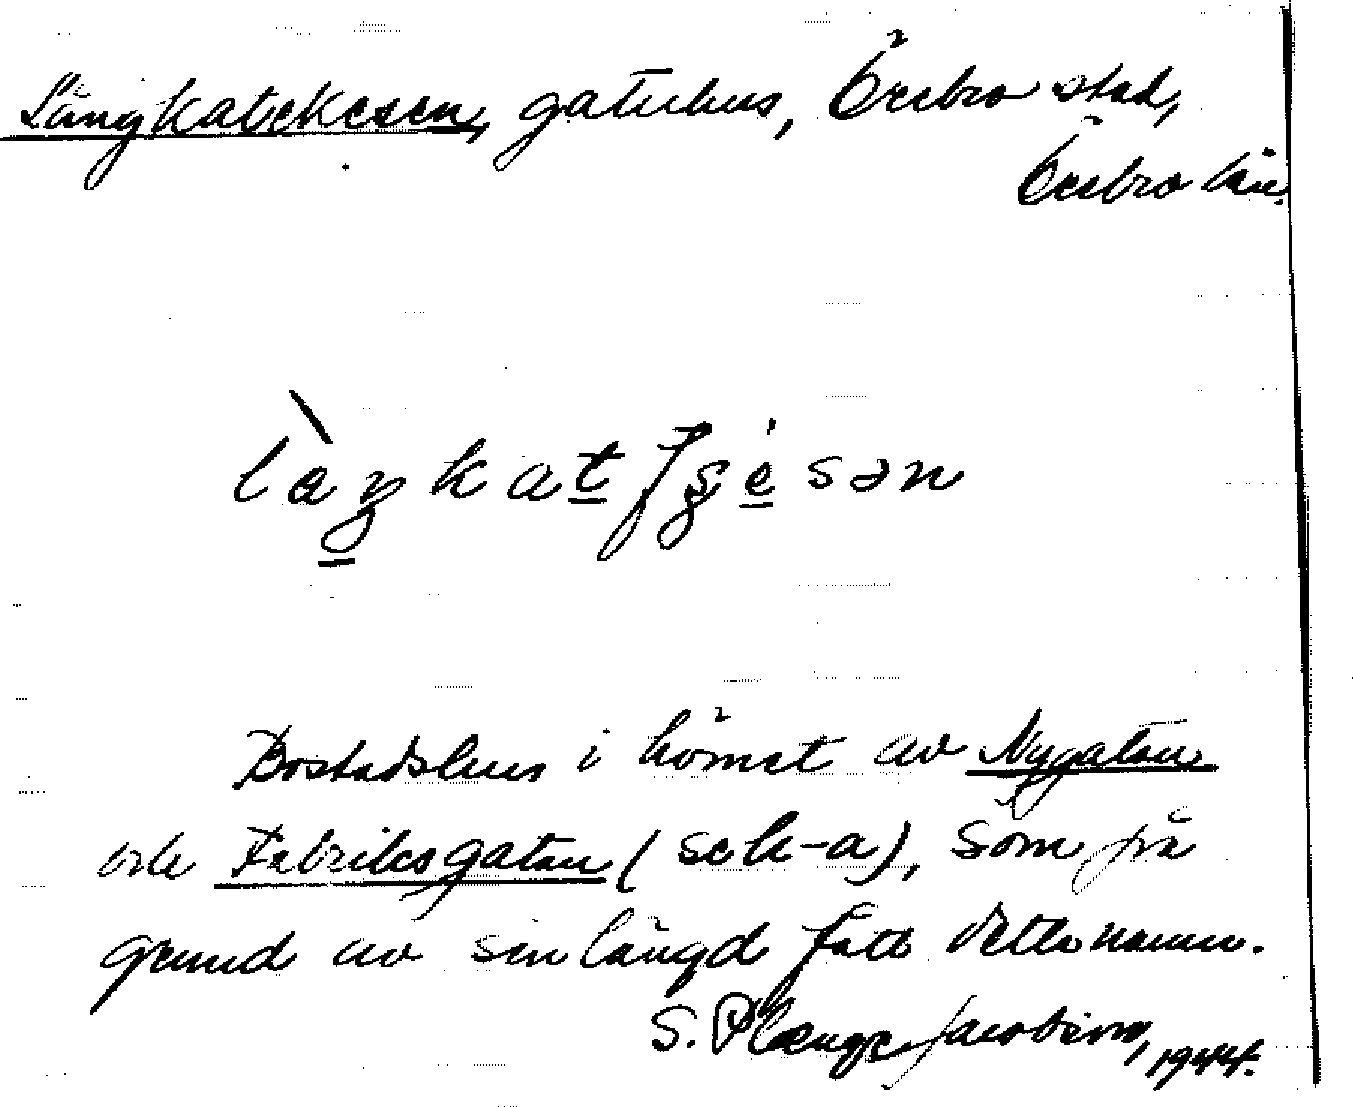 Långkatekesen, gatuhus, Örebro stad,
Örebro län.
Bostadshus i hörnet av Nygatan
och Fabriksgatan (se k-a), som på
grund av sin längd fått detta namn.
S. Plænge Jacobson, 1944.